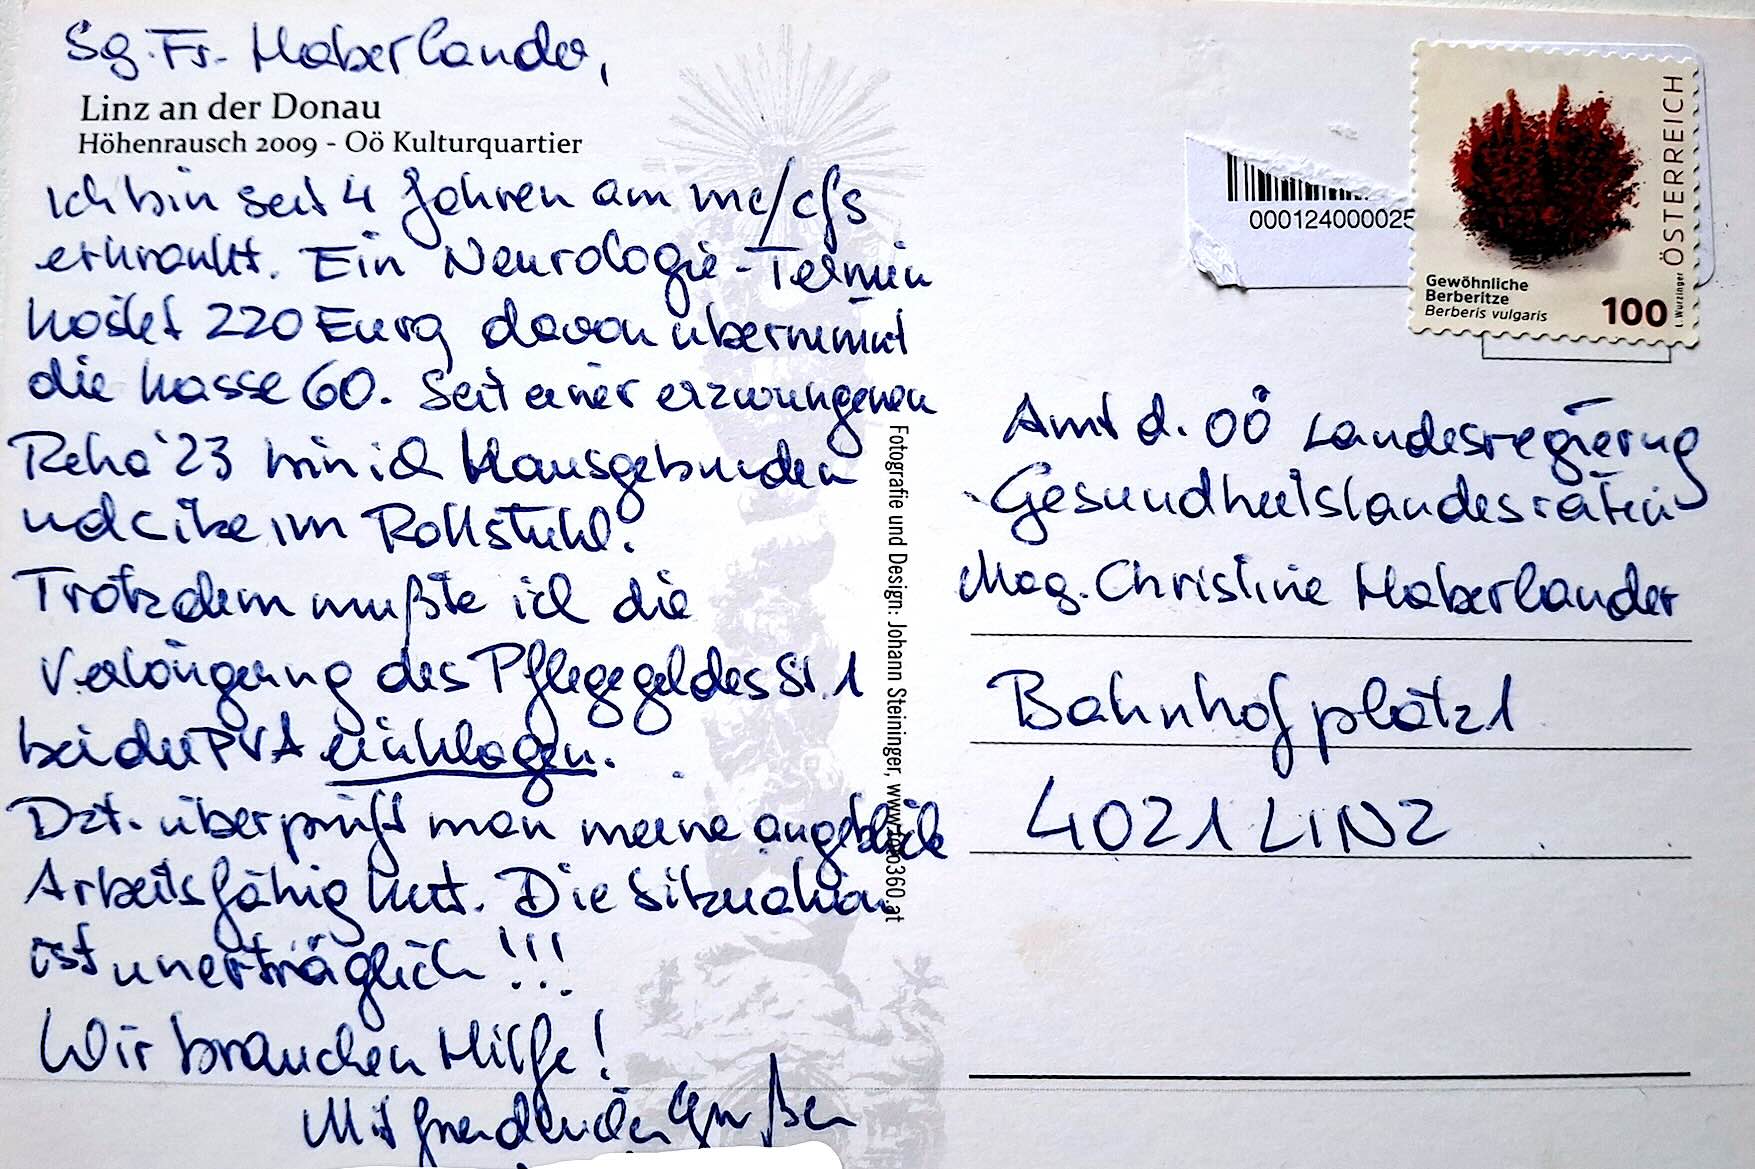 Sg. Fr. Haberlander,
Linz an der Donau
Höhenrausch 2009 - Oö Kulturquartier
Ich bin seit 4 Jahren am mc/cfs
erkrankt. Ein Neurologie-Termin
kostet 220 Euro davon übernimmt
die Kasse 60. Seit einer erzwungenen
Reha '23 bin ich Hausgebunden
und sitze im Rollstuhl.
Trotzdem mußte ich die
Verlängerung des Pflegegeldes St. 1
bei der PVA einklagen.
Dzt. überprüft man meine angebliche
Arbeitsfähigkeit. Die Situation
ist unerträglich!!!
Wir brauchen Hilfe!
Mit freundlichen Grüßen
Fotografie und Design: Johann Steininger, www.foto360.at
000124000025
ÖSTERREICH
Gewöhnliche
Berberitze
Berberis vulgaris
100
L. Wurzinger
Amt d. OÖ Landesregierung
Gesundheitslandesrätin
Mag. Christine Haberlander
Bahnhofplatz 1
4021 LINZ